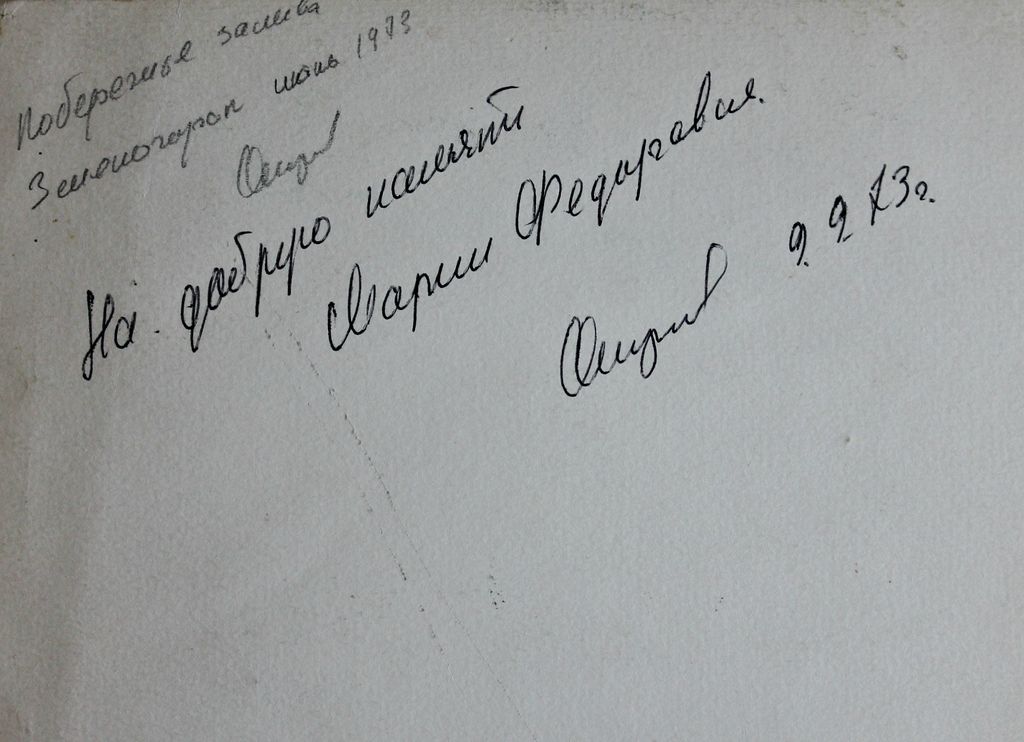 Побережье залива
Зеленогорск июнь 1973
На добрую память
Марии Федоровне.
9. 9 73 г.